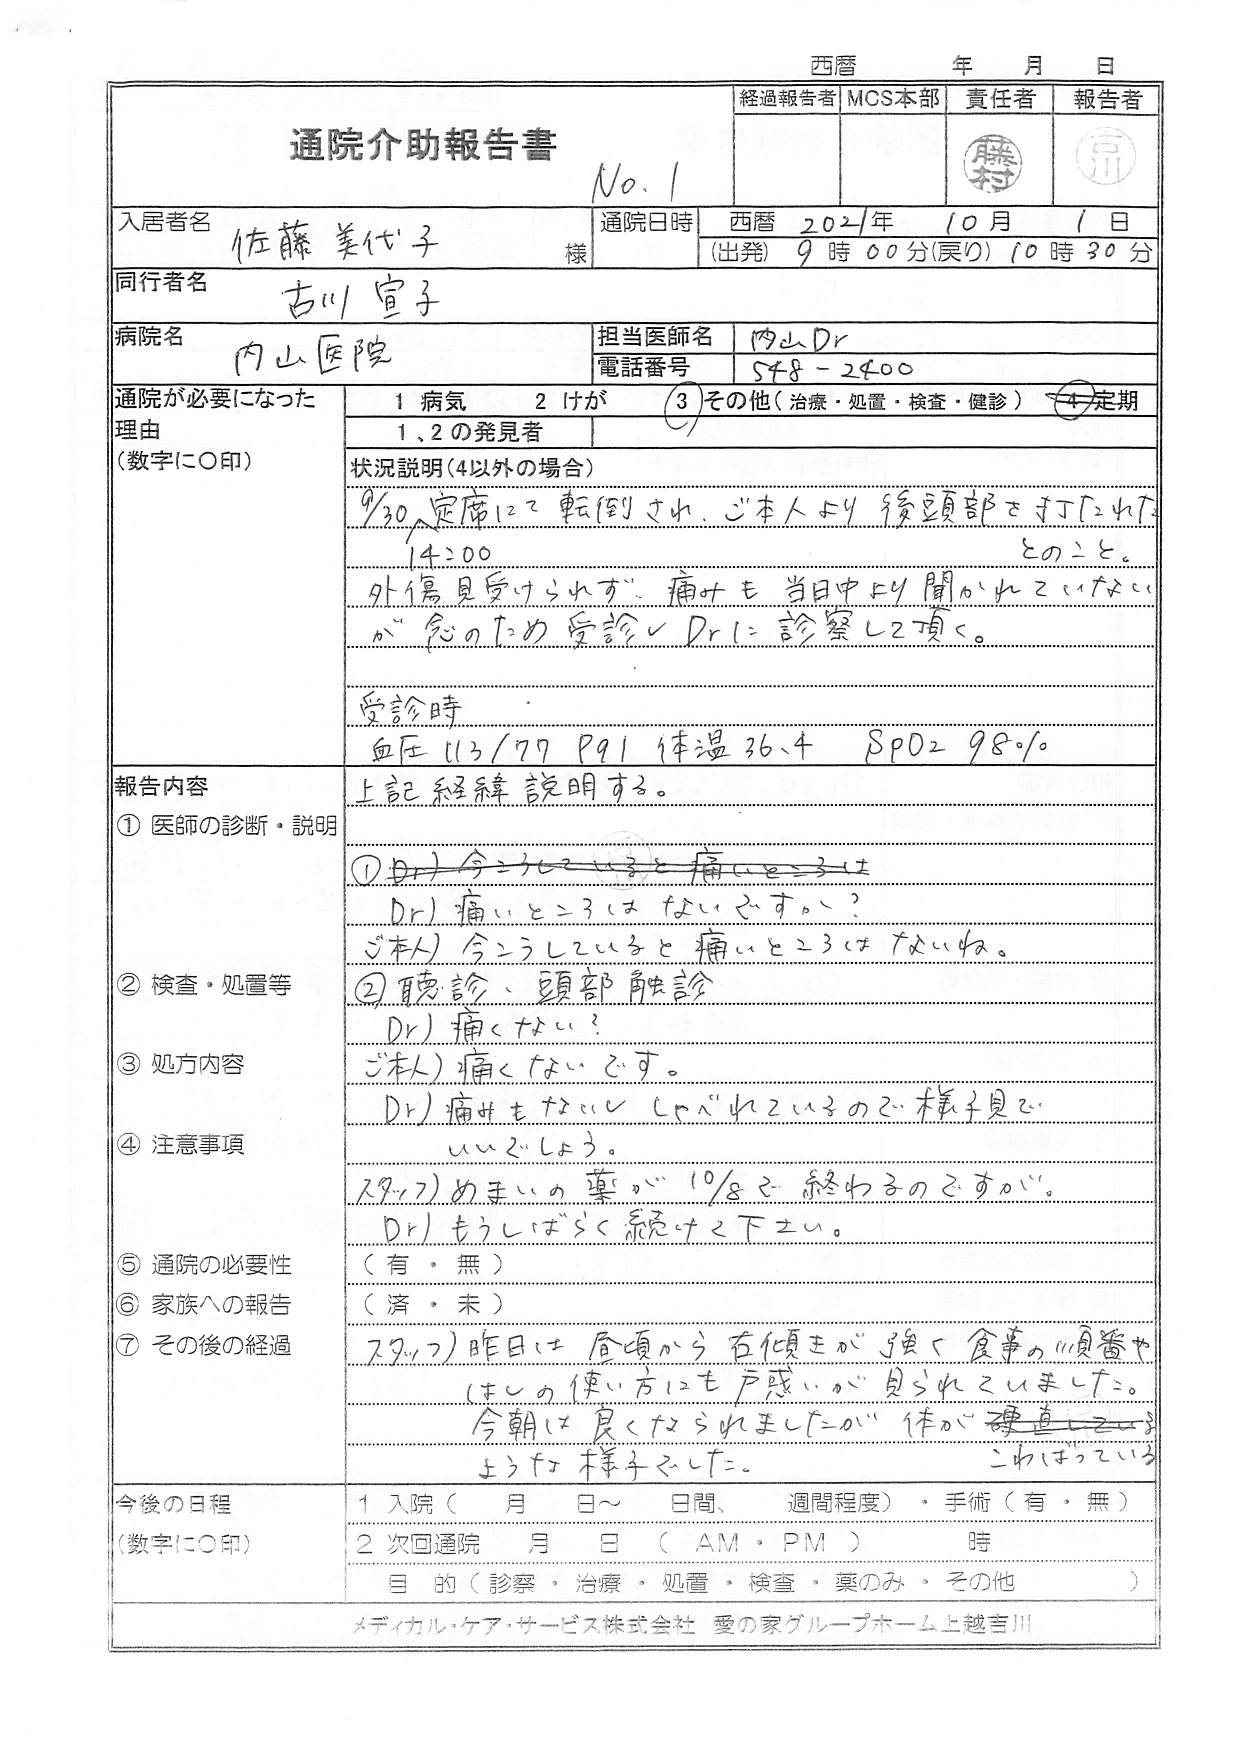 西暦　年　月　日
通院介助報告書 No.1
経過報告者 MCS本部 責任者 報告者
藤村 古川
入居者名 佐藤 美代子 様
通院日時 西暦 2021年 10月 1日
(出発) 9時00分(戻り) 10時30分
同行者名 古川 宣子
病院名 内山医院
担当医師名 内山Dr
電話番号 548-2400
通院が必要になった理由
(数字に〇印)
1 病気 2 けが ③ その他(治療・処置・検査・健診) ④ 定期
1、2の発見者
状況説明(4以外の場合)
9/30 定席にて転倒され、ご本人より後頭部を打たれた
14:00 とのこと。
外傷見受けられず、痛みも当日中より聞かれていない
が念のため受診しDrに診察して頂く。
受診時
血圧113/77 P91 体温36.4 SPO2 98%
報告内容
上記経緯説明する。
① 医師の診断・説明
① Dr) 今こうしていると痛いところは
Dr) 痛いところはないですか?
ご本人) 今こうしていると痛いところはないね。
② 検査・処置等
② 聴診、頭部触診
Dr) 痛くない?
③ 処方内容
ご本人) 痛くないです。
Dr) 痛みもないし しゃべれているので様子見で
④ 注意事項
いいでしょう。
スタッフ) めまいの薬が10/8で終わるのですが。
Dr) もうしばらく続けて下さい。
⑤ 通院の必要性 (有・無)
⑥ 家族への報告 (済・未)
⑦ その後の経過
スタッフ) 昨日は昼頃から右傾きが強く食事の順番や
はしの使い方にも戸惑いが見られていました。
今朝は良くなられましたが体が硬直している
こわばっている
ような様子でした。
今後の日程
(数字に〇印)
1 入院(　月　日～　日間、　週間程度)・手術(有・無)
2 次回通院　月　日　(AM・PM)　時
目 的(診察・治療・処置・検査・薬のみ・その他　)
メディカル・ケア・サービス株式会社 愛の家グループホーム上越吉川